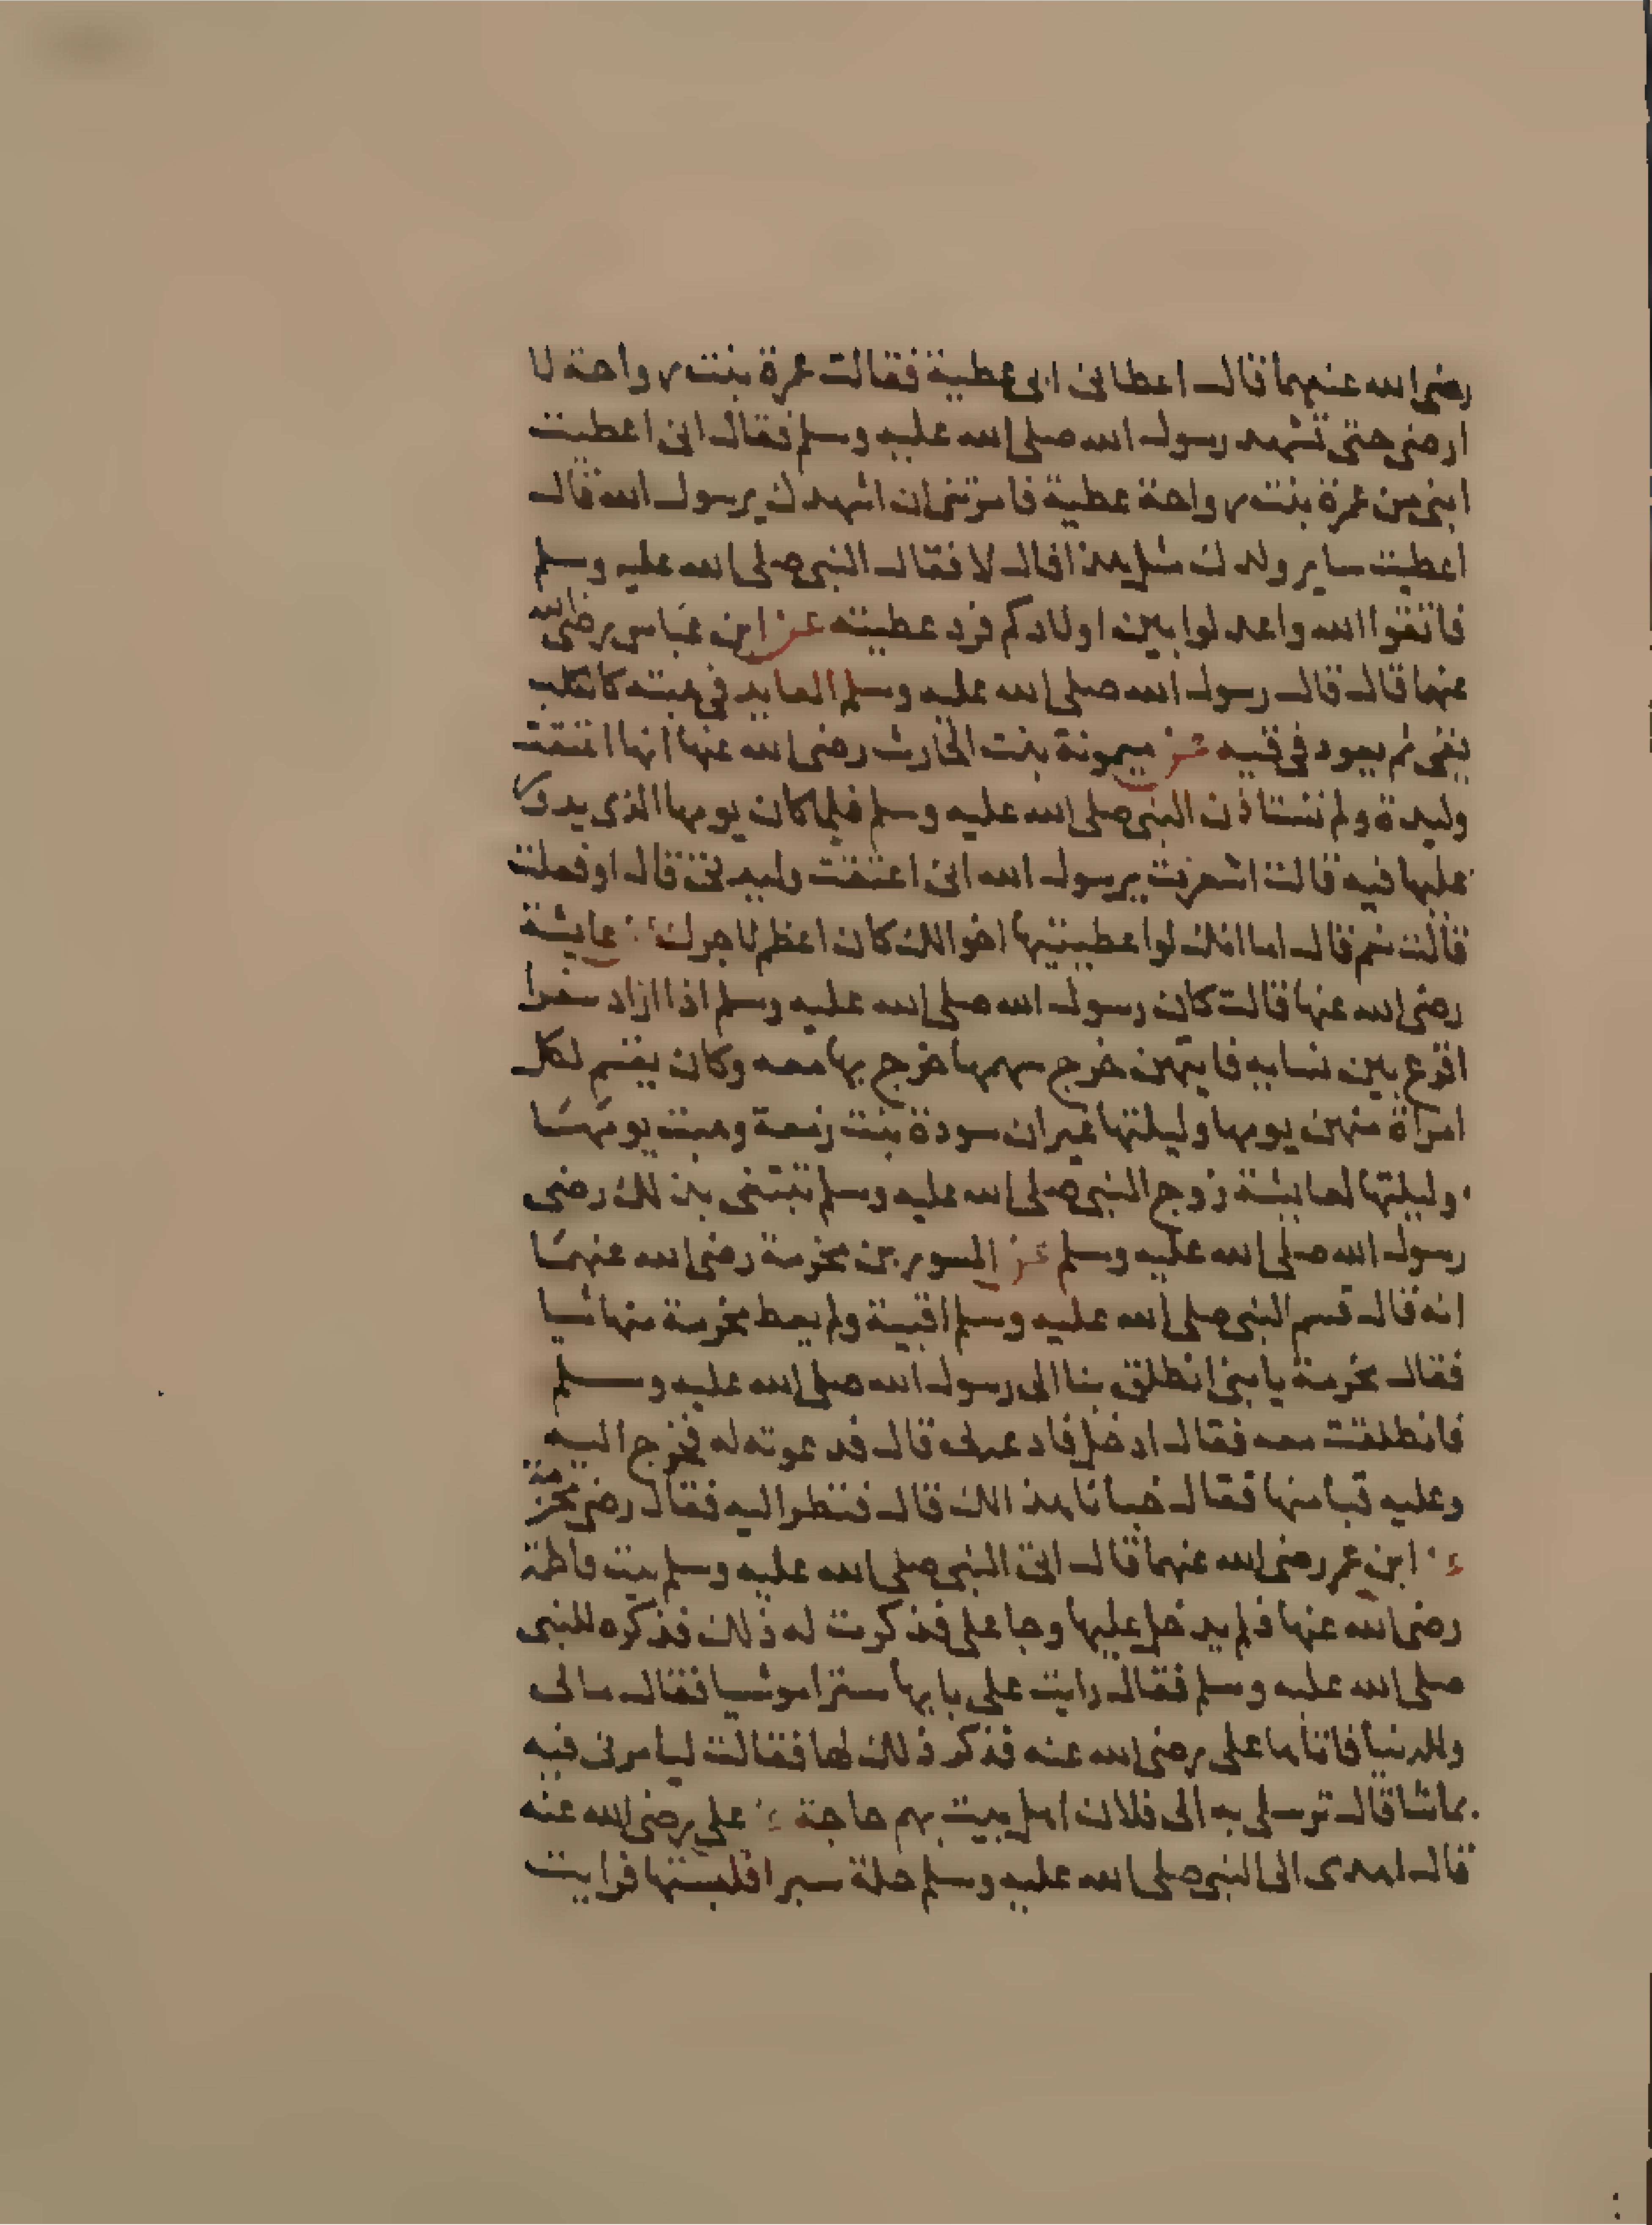 رضى الله عنهما قال اعطانى ابى عطية فقالت عمرة بنت رواحة لا
ارضى حتى تشهد رسول الله صلى الله عليه وسلم فقال انى اعطيت
ابنى من عمرة بنت رواحة عطية فامرتنى ان اشهدك يرسول الله قال
اعطيت ساير ولدك مثل هذا قال لا فقال النبى صلى الله عليه وسلم
فاتقوا الله واعدلوا بين اولادكم فرد عطيته عن ابن عباس رضى الله
عنهما قال قال رسول الله صلى الله عليه وسلم العايد فى هبته كالكلب
يقى ثم يعود فى قيه عن ميمونة بنت الحارث رضى الله عنها انها اعتقت
وليدة ولم تستاذن النبى صلى الله عليه وسلم فلما كان يومها الذى يدور
عليها فيه قالت اشعرت يرسول الله انى اعتقت وليدتى قال اوفعلت
قالت نعم قال اما انك لو اعطيتيها اخوالك كان اعظم لاجرك عن عايشة
رضى الله عنها قالت كان رسول الله صلى الله عليه وسلم اذا اراد سفرا
اقرع بين نسايه فايتهن خرج سهمها خرج بها معه وكان يقسم لكل
امراة منهن يومها وليلتها غير ان سودة بنت زمعة وهبت يومها
وليلتها لعايشة زوج النبى صلى الله عليه وسلم تبتغى بذلك رضى
رسول الله صلى الله عليه وسلم عن المسور بن مخرمة رضى الله عنهما
انه قال قسم النبى صلى الله عليه وسلم اقبية ولم يعط مخرمة منها شيا
فقال مخرمة يا بنى انطلق بنا الى رسول الله صلى الله عليه وسلم
فانطلقت معه فقال ادخل فادعه لى قال فدعوته له فخرج اليه
وعليه قبا منها فقال خبانا هذا لك قال فنظر اليه فقال رضى مخرمة
عن ابن عمر رضى الله عنهما قال اتى النبى صلى الله عليه وسلم بيت فاطمة
رضى الله عنها فلم يدخل عليها وجا على فذكرت له ذلك فذكره للنبى
صلى الله عليه وسلم فقال رايت على بابها سترا موشيا فقال مالى
وللدنيا فاتاها على رضى الله عنه فذكر ذلك لها فقالت ليامرنى فيه
بماشا قال ترسلى به الى فلان اهل بيت بهم حاجة عن على رضى الله عنه
قال اهدى الى النبى صلى الله عليه وسلم حلة سيرا فلبستها فرايت